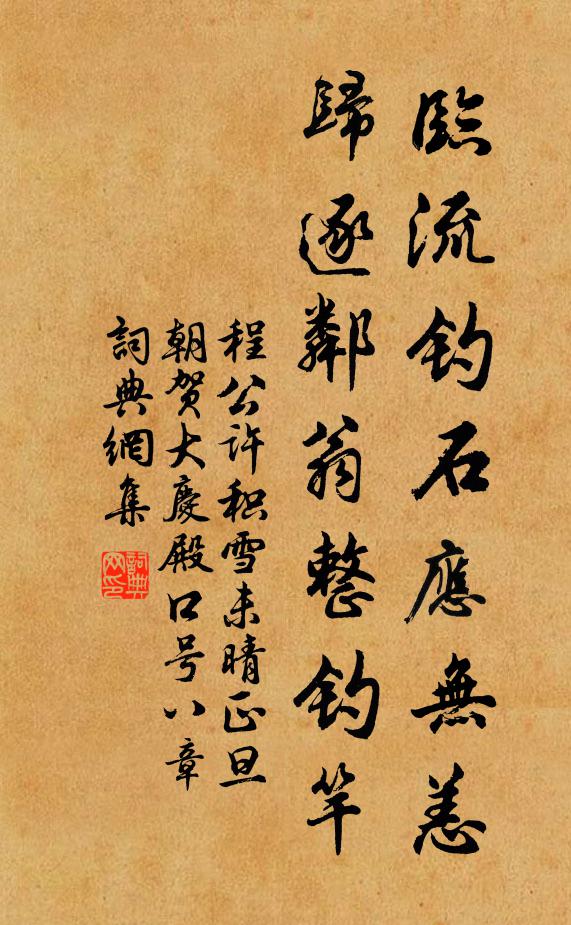 臨流釣石應無恙
歸逐鄰翁整釣竿
程公许积雪未晴正旦
朝贺大慶殿口号八章
詞典網集
詞典
网印